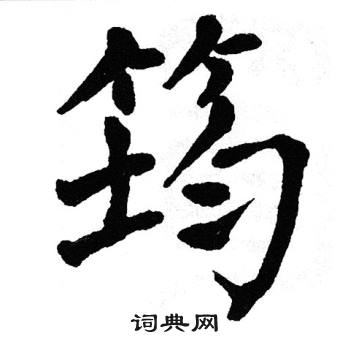 筠
词典网